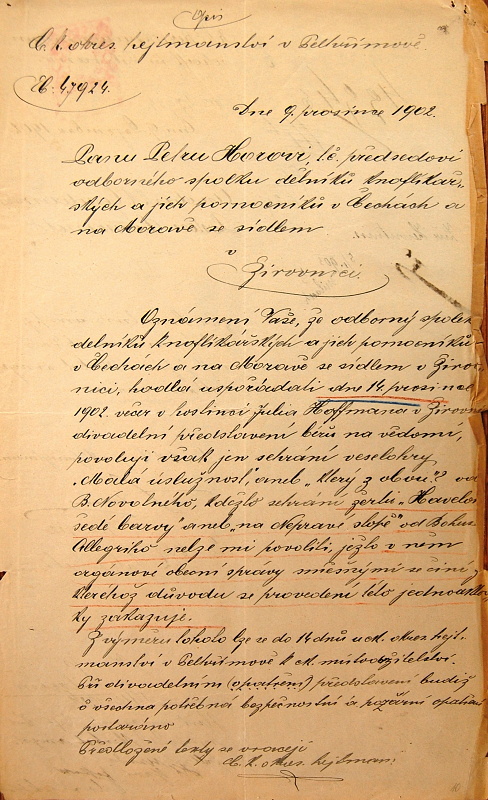 Opis
C. k. okres. hejtmanství v Pelhřimově.
Čč. 47924.
Dne 9. prosince 1902.
Panu Petru Horovi, t. č. předsedovi
odborného spolku dělníků knoflikář-
ských a jich pomocníků v Čechách a
na Moravě se sídlem
v
Žirovnici.
Oznámení Vaše, že odborný spolek
dělníků knoflikářských a jich pomocníků
v Čechách a na Moravě se sídlem v Žirov
nici, hodlá uspořádati dne 14. prosince
1902 večer v hostinci Julia Hoffmana v Žirovni
divadelní představení béru na vědomí,
povoluji však jen sehrání veselohry
„Malá úslužnost", aneb „který z obou"? od
B. Novotného, kdežto sehrání žertu „Havelok
šedé barvy" aneb „na Nepravé stopě" od Bohusl
Allegriho nelze mi povoliti, ježto v něm
orgánové obecní správy směšnými se činí z
kteréhož důvodu se provedení této jednoakto
ky zakazuje.
Z výměru tohoto lze se do 14 dnů u ck. okres. hejt-
manství v Pelhřimově k ck. místodržitelství.
Při divadelním (opatření) představení budiž
o všechna potřebná bezpečnostní a požární opatření
postaráno
Předložené texty se vracejí
C. k. okres. hejtman: